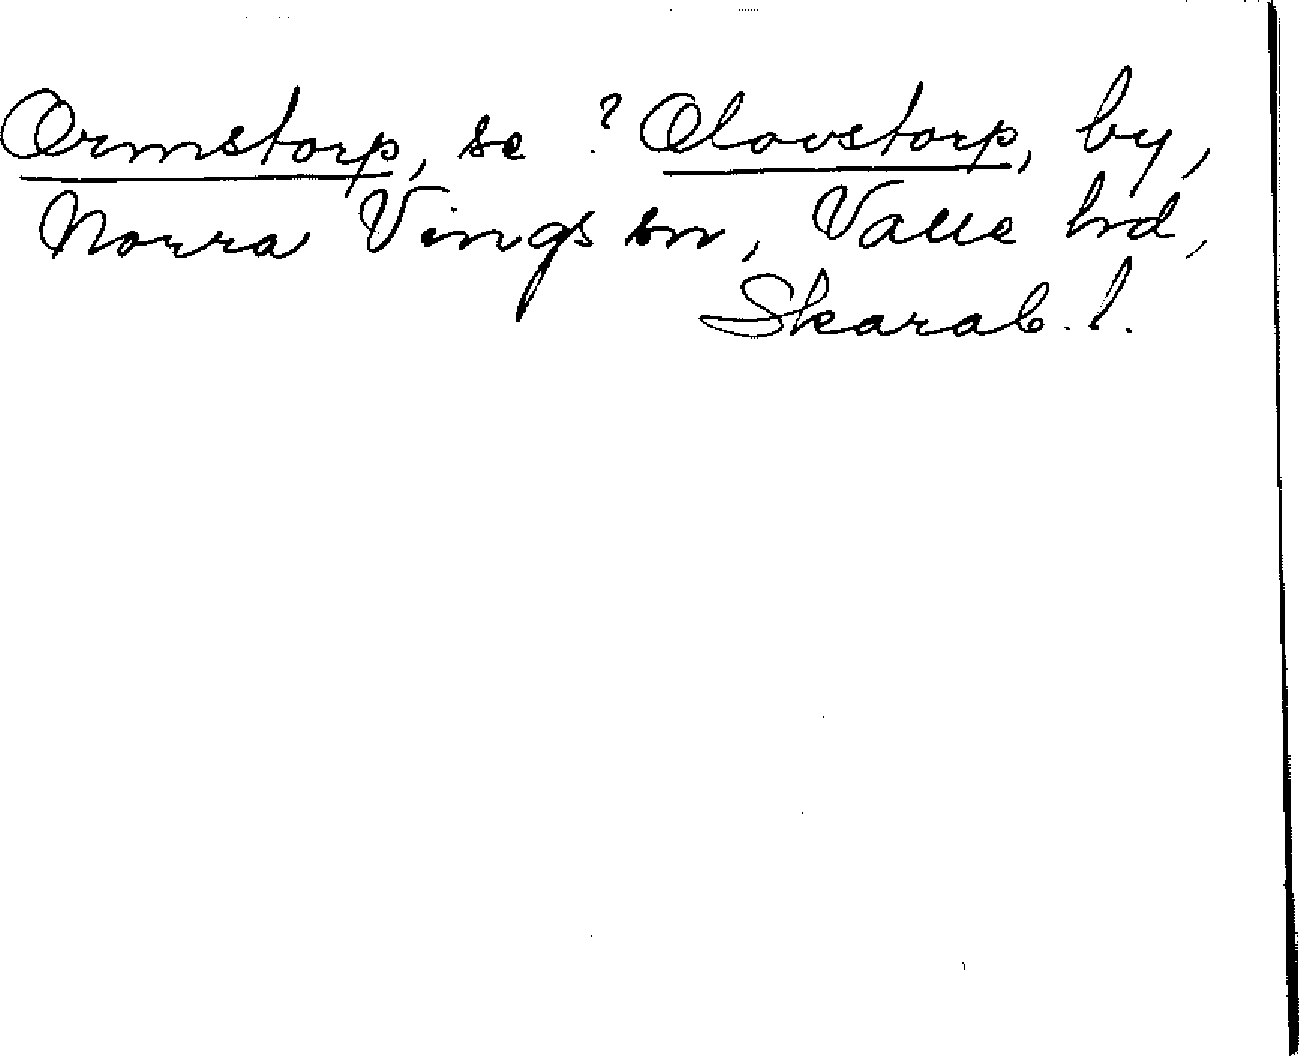 Ormstorp, se ? Olovstorp, by,
Norra Vings sn, Valle hd,
Skarab. l.